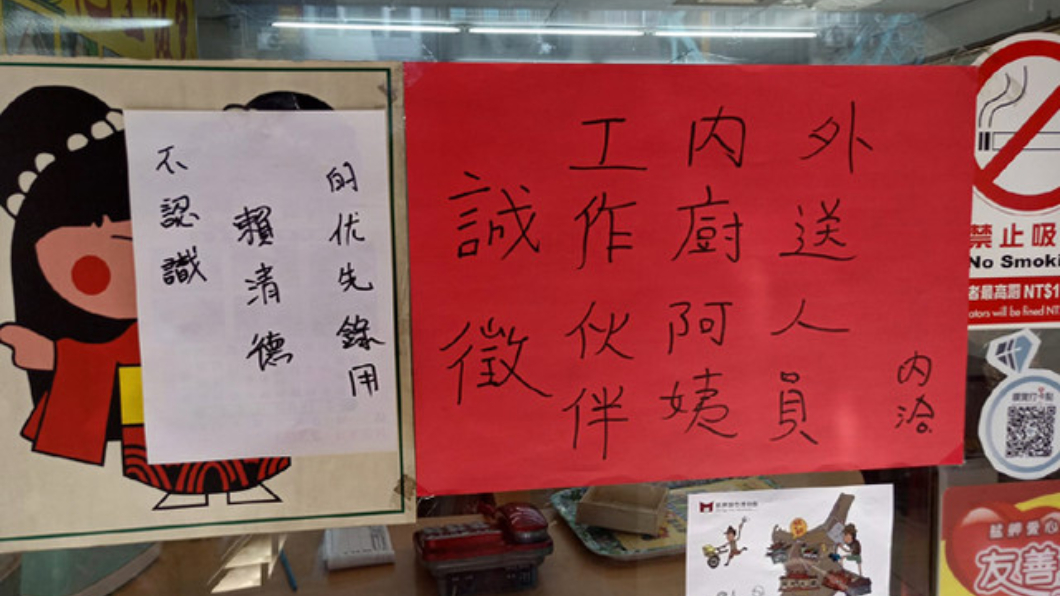 不認識
賴清德
的优先錄用
誠徵
工作伙伴
内廚阿姨
外送人員
内洽
禁止吸
No Smoki
者最高罰 NT$1
ators will be fined NT
愛心
友善